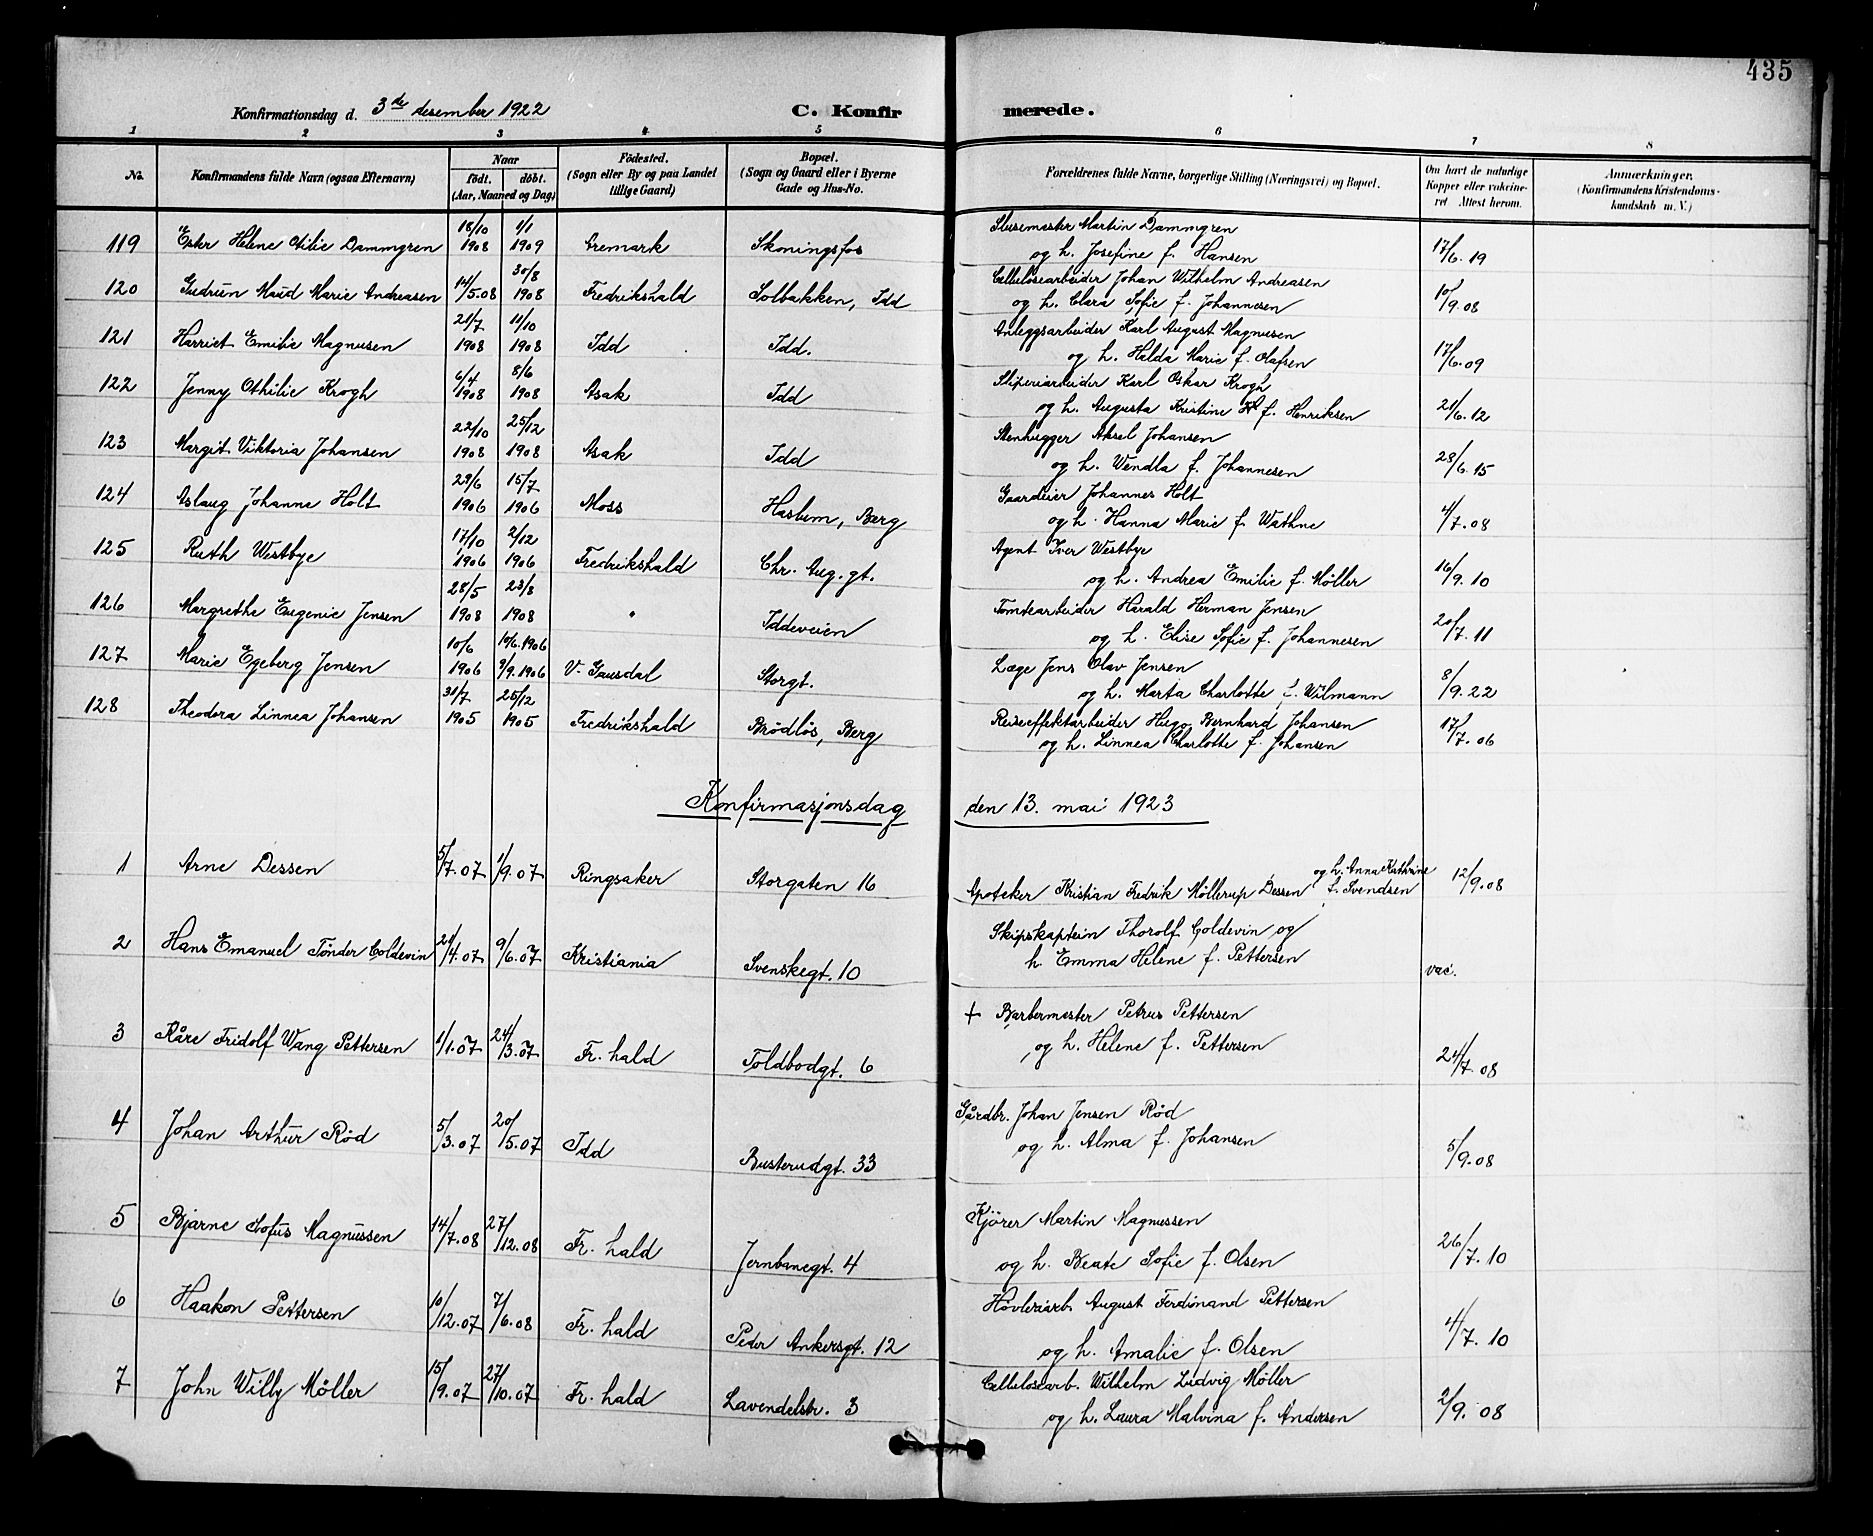 435
Konfirmationsdag d. 3de desember 1922
C. Konfirmerede.
1 2 3 4 5 6 7 8
No.
Konfirmandens fulde Navn (ogsaa Efternavn)
Naar
födt. döbt.
(Aar, Maaned og Dag)
Födested.
(Sogn eller By og paa Landet
tillige Gaard)
Bopæl.
(Sogn og Gaard eller i Byerne
Gade og Hus-No.
Forældrenes fulde Navne, borgerlige Stilling (Næringsvei) og Bopæl.
Om havt de naturlige
Kopper eller vakcine-
ret Attest herom.
Anmærkninger.
(Konfirmandens Kristendoms-
kundskab m. V.)
119 Ester Helene Otilie Dammgren 18/10 1908 1/1 1909 Aremark Skoningsfos Slusemester Martin Dammgren
og h. Josefine f. Hansen 17/6. 19
120 Gudrun Maud Marie Andreasen 14/5.08 30/8 1908 Fredrikshald Solbakken, Idd Cellulosearbeider Johan Wilhelm Andreasen
og h. Clara Sofie f. Johannesen 10/9.08
121 Harriet Emilie Magnusen 21/7 1908 11/10 1908 Idd Idd. Anleggsarbeider Karl August Magnusen
og h. Hilda Marie f. Olafsen 17/6.09
122 Jenny Othilie Krogh 6/4 1908 8/6 1908 Asak Idd Sliperiarbeider Karl Oskar Krogh
og h. Augusta Kristine f. Henriksen 21/6.12
123 Margit Viktoria Johansen 22/10 1908 25/12 1908 Asak Idd Stenhugger Aksel Johansen
og h. Wendla f. Johannesen 28/6.15
124 Aslaug Johanne Holt 29/6 1906 15/7 1906 Moss Haslum, Berg Gaardeier Johannes Holt
og h. Hanna Marie f. Wathne 4/7.08
125 Ruth Westbye 17/10 1906 2/12 1906 Fredrikshald Chr. Aug. gt. Agent Iver Westbye
og h. Andrea Emilie f. Møller 16/9.10
126 Margrethe Eugenie Jensen 28/5 1908 23/8 1908 " Iddeveien Tomtearbeider Harald Herman Jensen
og h. Elise Sofie f. Johannesen 20/7.11
127 Marie Egeberg Jensen 10/6 1906 10/6.1906 9/9.1906 V. Gausdal Storgt. Læge Jens Olav Jensen
og h. Marta Charlotte f. Wilmann 8/9.22
128 Theodora Linnea Johansen 31/7 1905 25/12 1905 Fredrikshald Brödlös, Berg Reiseeffektarbeider Hugo Bernhard Johansen
og h. Linnea Charlotte f. Johansen 17/7.06
Konfirmasjonsdag den 13. mai 1923
1 Arne Dessen 5/7.07 1/9.07 Ringsaker Storgaten 16 Apoteker Kristian Fredrik Möllerup Dessen og h. Anna Kathrine
f. Svendsen 12/9.08
2 Hans Emanuel Tönder Coldevin 21/4.07 9/6.07 Kristiania Svenskegt. 10 Skipskaptein Thorolf Coldevin og
h. Emma Helene f. Pettersen vac.
3 Kåre Fridolf Wang Pettersen 1/1.07 24/3.07 Fr. hald Toldbodgt. 6 + Barbermester Petrus Pettersen
og h. Helene f. Pettersen 24/7.08
4 Johan Arthur Röd 5/3.07 20/5.07 Idd Busterudgt. 33 Gårdbr. Johan Jensen Röd
og h. Alma f. Johansen 5/9.08
5 Bjarne Sofus Magnussen 14/7.08 27/12.08 Fr. hald Jernbanegt. 4 Kjörer Martin Magnussen
og h. Beate Sofie f. Olsen 26/7.10
6 Haakon Pettersen 10/12.07 7/6.08 Fr. hald Peder Ankersgt. 12 Hövleriarb. August Ferdinand Pettersen
og h. Amalie f. Olsen 4/7.10
7 John Willy Möller 15/9.07 27/10.07 Fr. hald Lavendelstr. 3 Cellulosearb. Wilhelm Ludvig Möller
og h. Laura Malvina f. Andersen 2/9.08